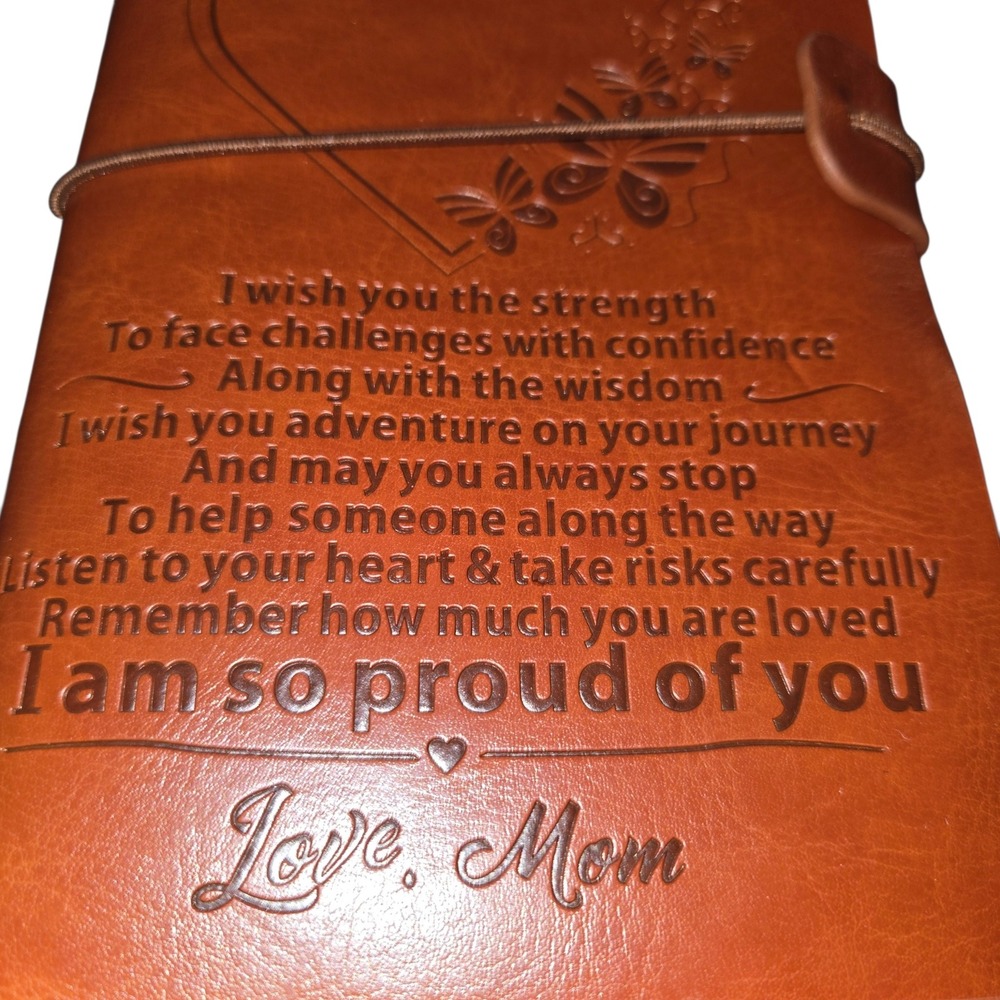 I wish you the strength
To face challenges with confidence
Along with the wisdom
I wish you adventure on your journey
And may you always stop
To help someone along the way
Listen to your heart & take risks carefully
Remember how much you are loved
I am so proud of you
Love, Mom